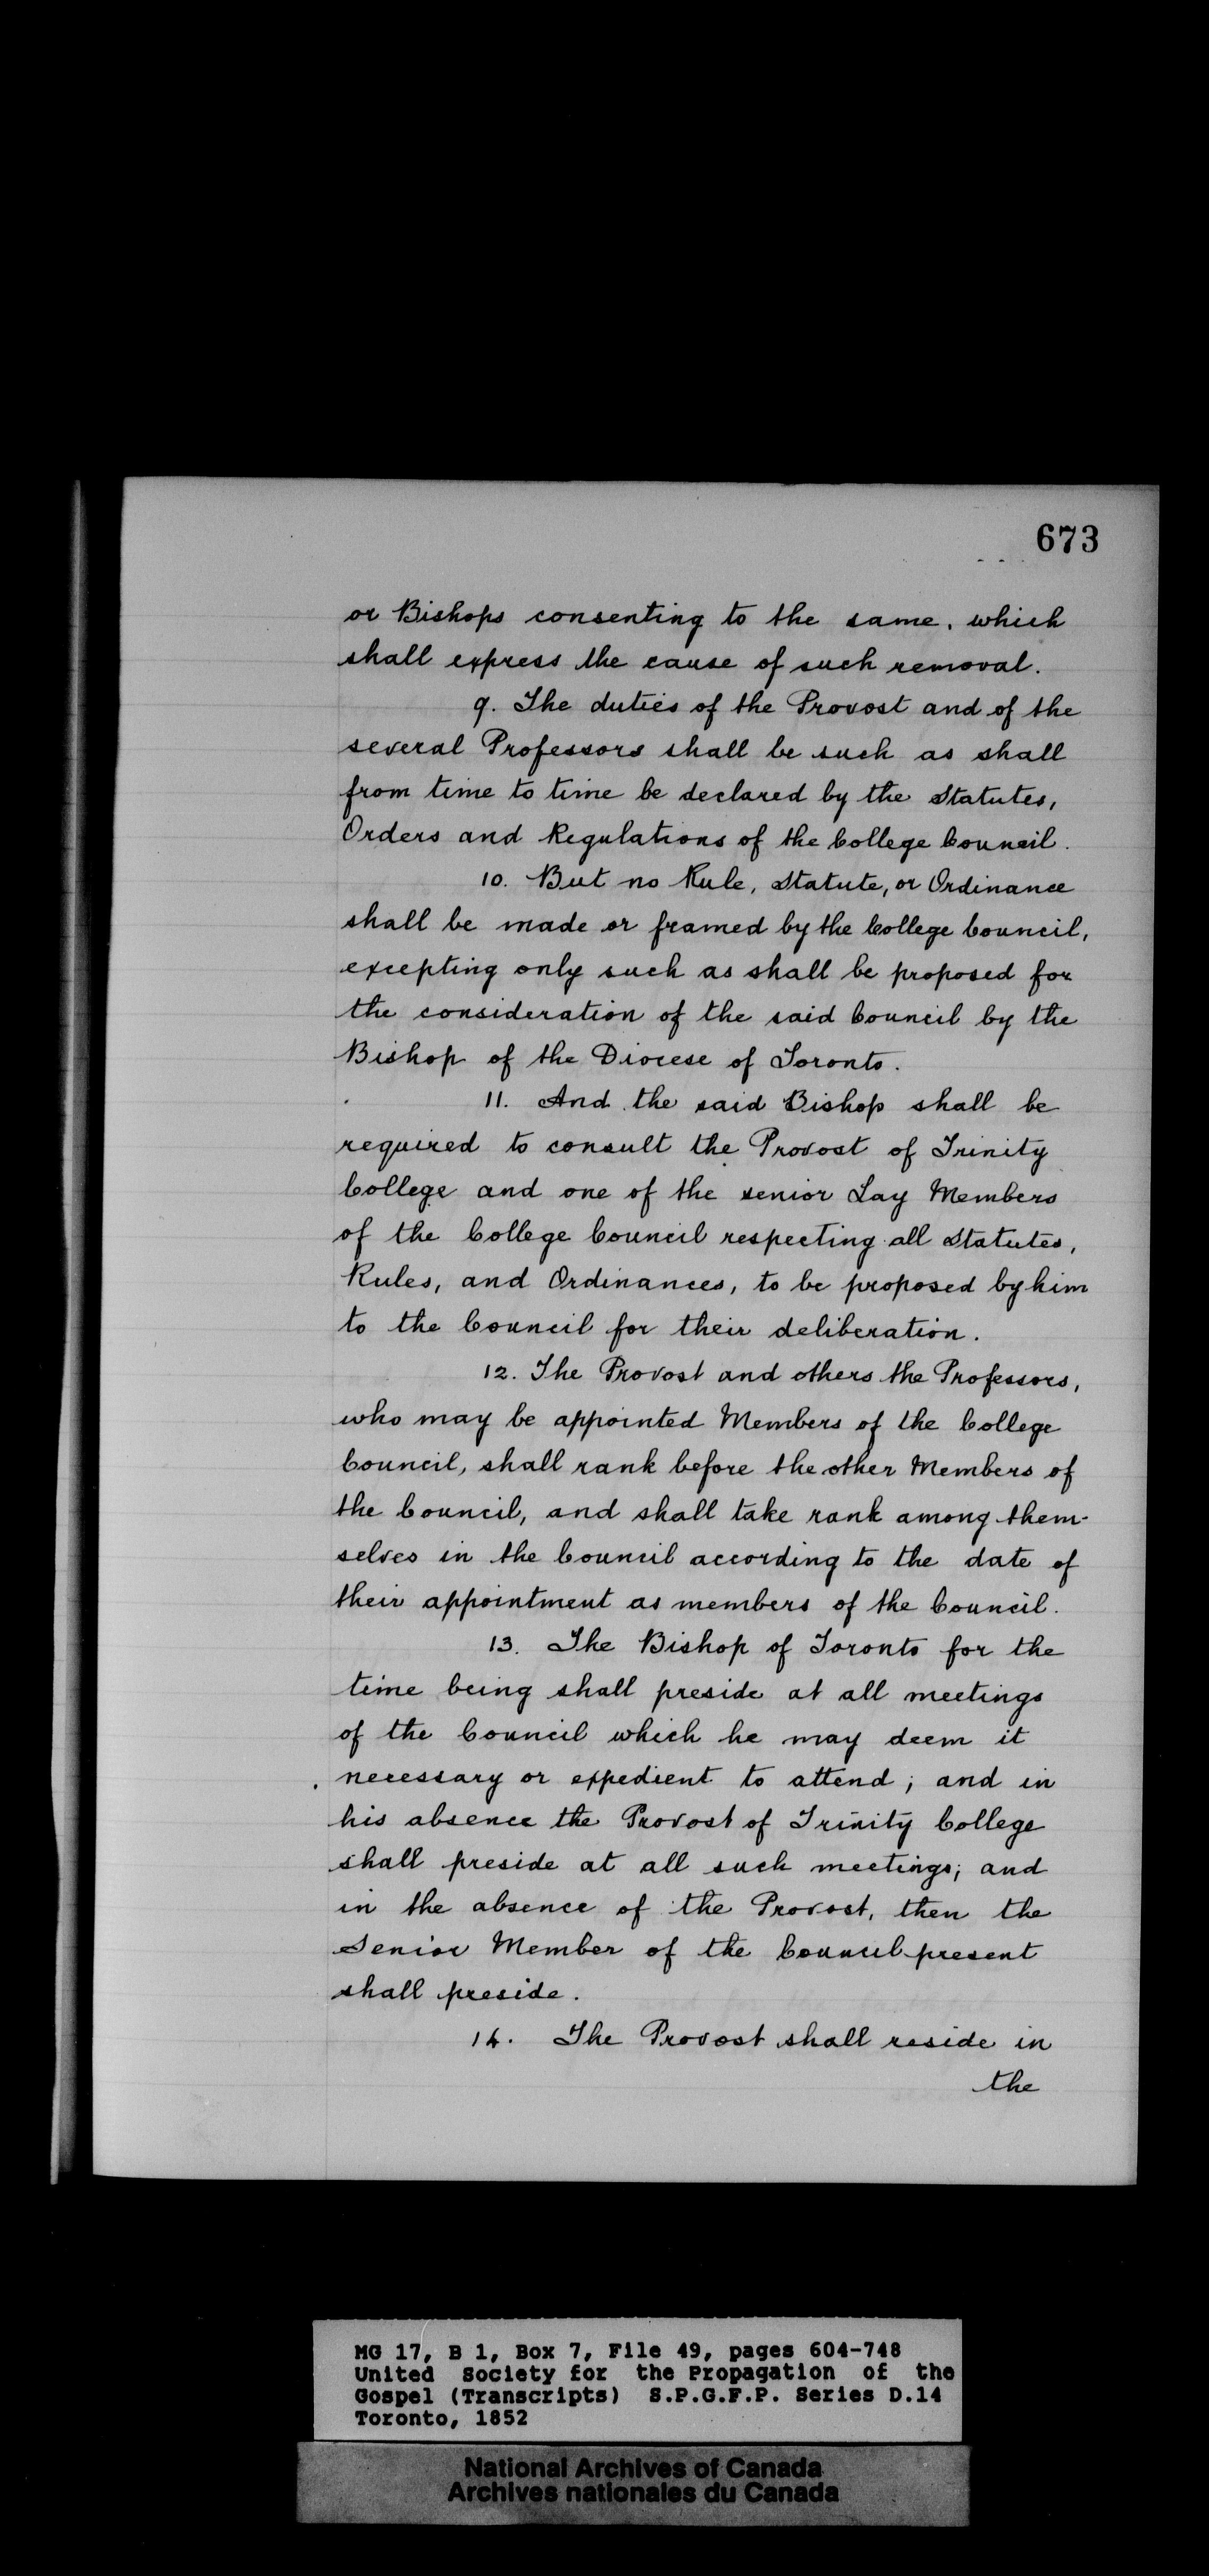 673
or Bishops consenting to the same, which
shall express the cause of such removal.
9. The duties of the Provost and of the
several Professors shall be such as shall
from time to time be declared by the Statutes,
Orders and Regulations of the College Council.
10. But no Rule, Statute, or Ordinance
shall be made or framed by the College Council,
excepting only such as shall be proposed for
the consideration of the said Council by the
Bishop of the Diocese of Toronto.
11. And the said Bishop shall be
required to consult the Provost of Trinity
College and one of the senior Lay Members
of the College Council respecting all Statutes,
Rules, and Ordinances, to be proposed by him
to the Council for their deliberation.
12. The Provost and others the Professors,
who may be appointed Members of the College
Council, shall rank before the other Members of
the Council, and shall take rank among them-
selves in the Council according to the date of
their appointment as members of the Council.
13. The Bishop of Toronto for the
time being shall preside at all meetings
of the Council which he may deem it
necessary or expedient to attend; and in
his absence the Provost of Trinity College
shall preside at all such meetings; and
in the absence of the Provost, then the
Senior Member of the Council present
shall preside.
14. The Provost shall reside in
the
MG 17, B 1, Box 7, File 49, pages 604-748
United Society for the Propagation of the
Gospel (Transcripts) S.P.G.F.P. Series D.14
Toronto, 1852
National Archives of Canada
Archives nationales du Canada